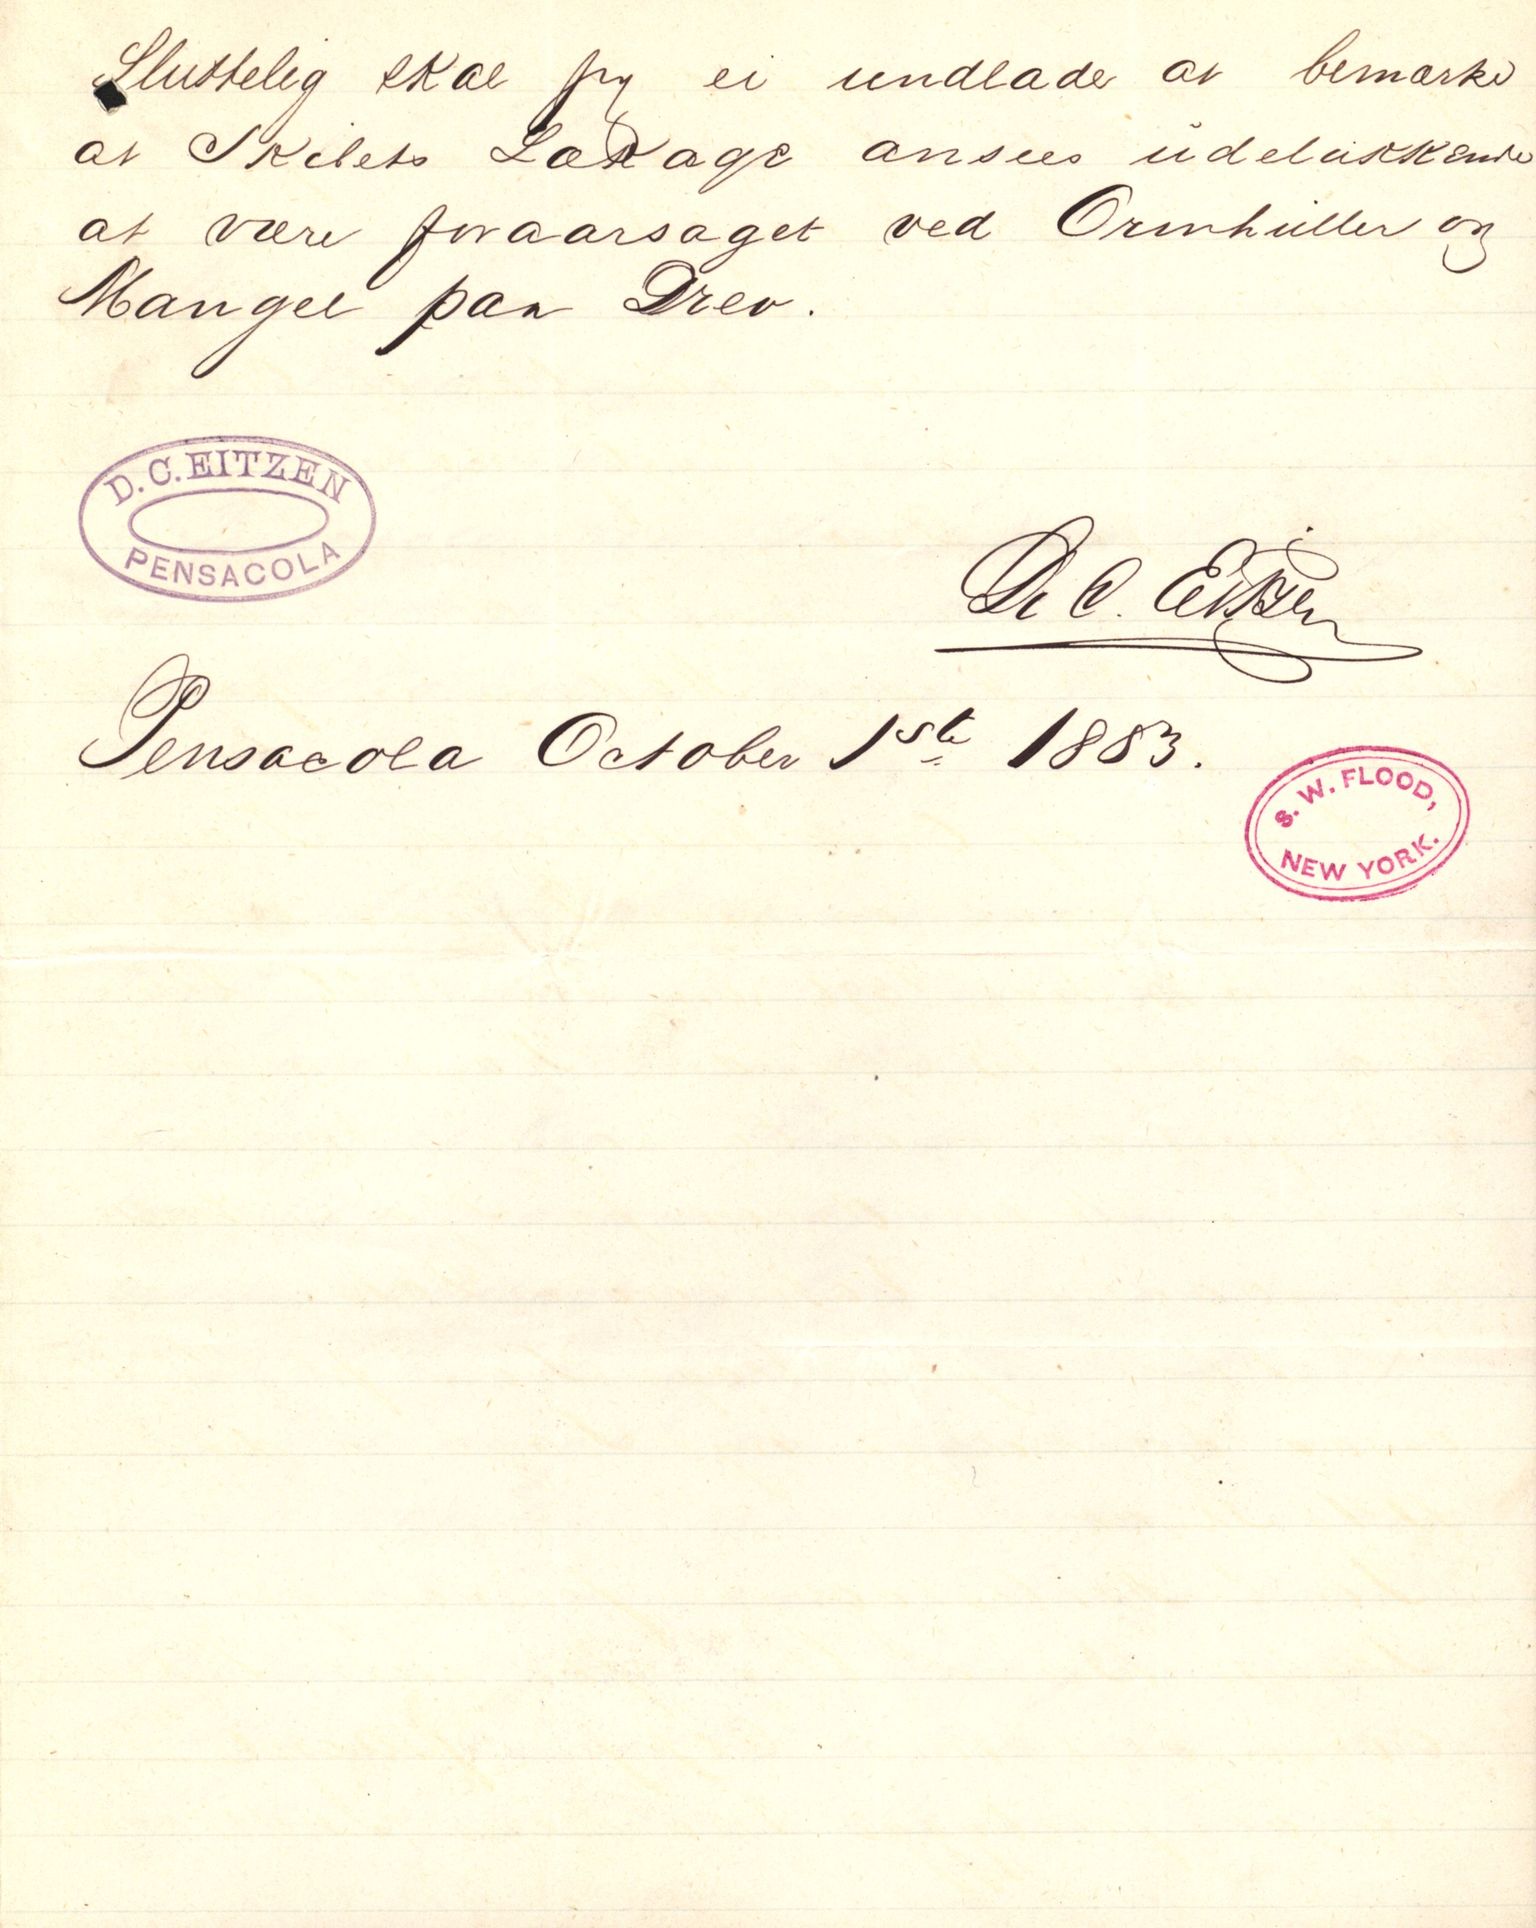 Sluttelig skal jeg ei undlade at bemærke
at Skibets Lækage ansees udelukkende
at være foraarsaget ved Ormhuller og
Mangel paa Drev.
D. C. EITZEN
PENSACOLA
D. C. Eitzen
Pensacola October 1ste 1883.
S. W. FLOOD,
NEW YORK.